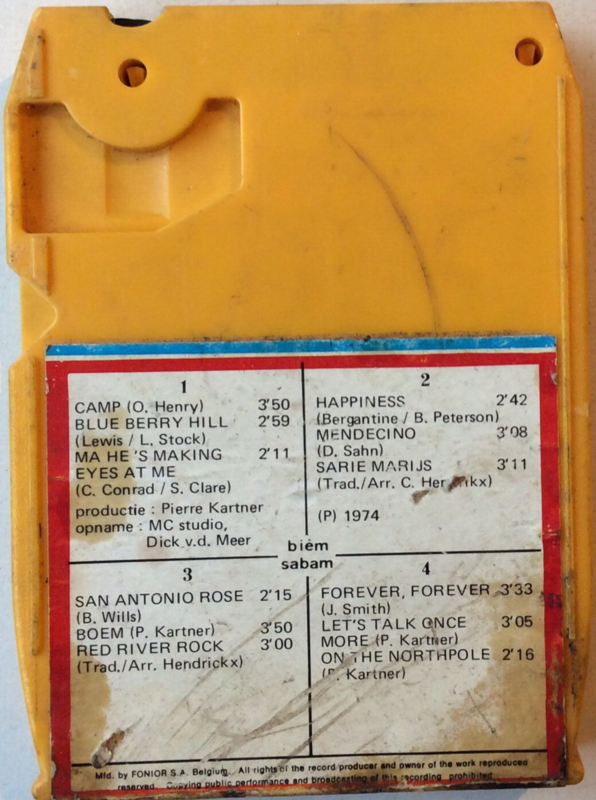 1
CAMP (O. Henry) 3'50
BLUE BERRY HILL 2'59
(Lewis / L. Stock)
MA HE'S MAKING 2'11
EYES AT ME
(C. Conrad / S. Clare)
productie : Pierre Kartner
opname : MC studio,
Dick v.d. Meer
2
HAPPINESS 2'42
(Bergantine / B. Peterson)
MENDECINO 3'08
(D. Sahn)
SARIE MARIJS 3'11
(Trad./Arr. C.
(P) 1974
biem
sabam
3
SAN ANTONIO ROSE 2'15
(B. Wills)
BOEM (P. Kartner) 3'50
RED RIVER ROCK 3'00
(Trad./Arr. Hendrickx)
4
FOREVER, FOREVER 3'33
(J. Smith)
LET'S TALK ONCE 3'05
MORE (P. Kartner)
ON THE NORTHPOLE 2'16
(P. Kartner)
Mfd. by FONIOR S.A. Belgium. All rights of the record producer and owner of the work reproduced
reserved. Copying public performance and broadcasting of this recording prohibited